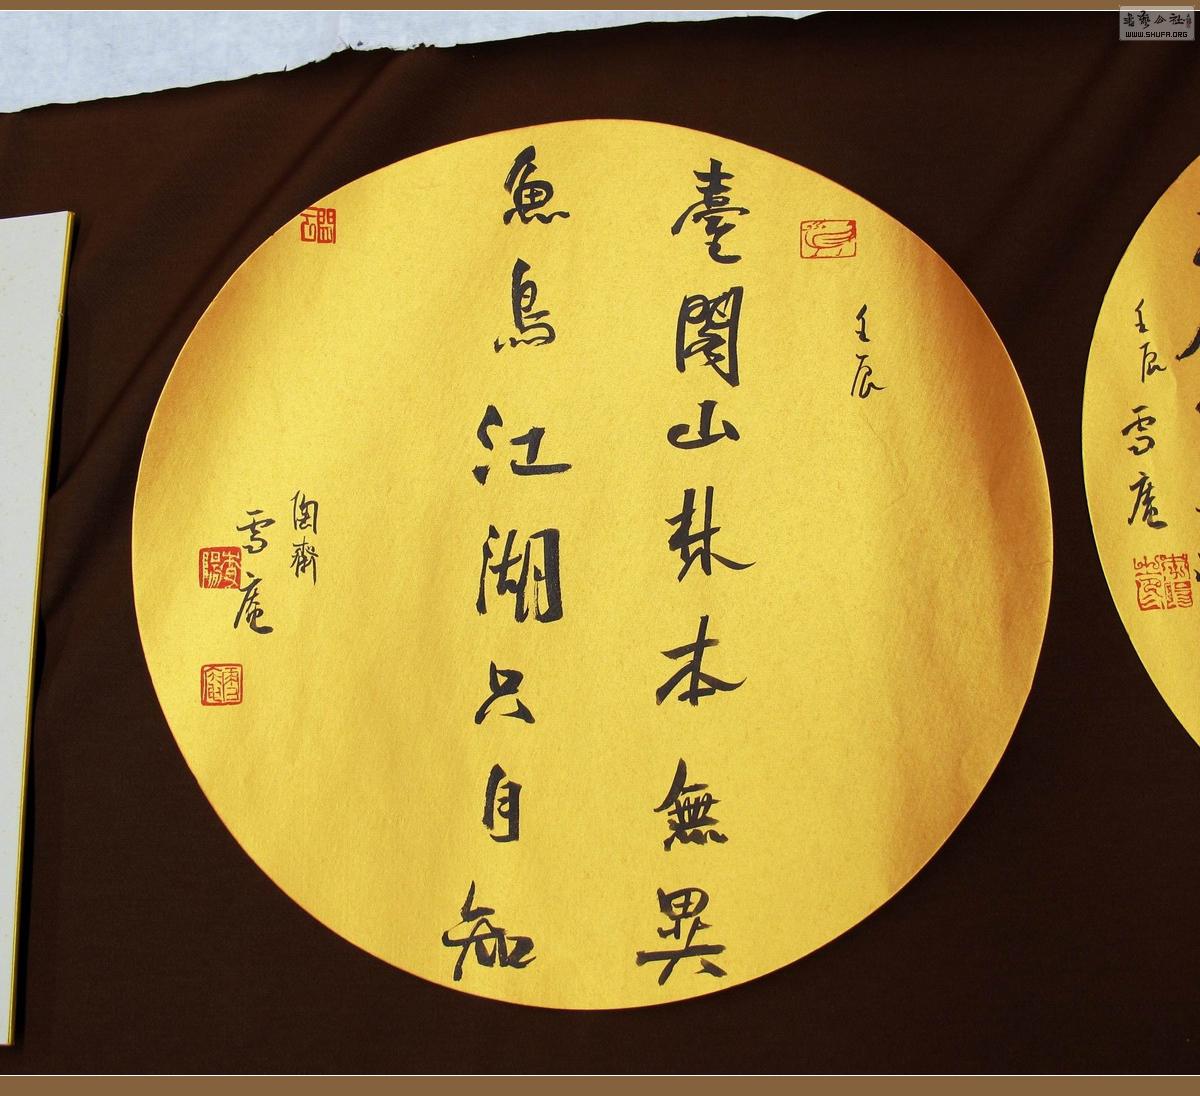 壬辰
臺閣山林本無異
魚鳥江湖只自知
陶齋
雪庵
壬辰
雪庵
WWW.SHUFA.ORG